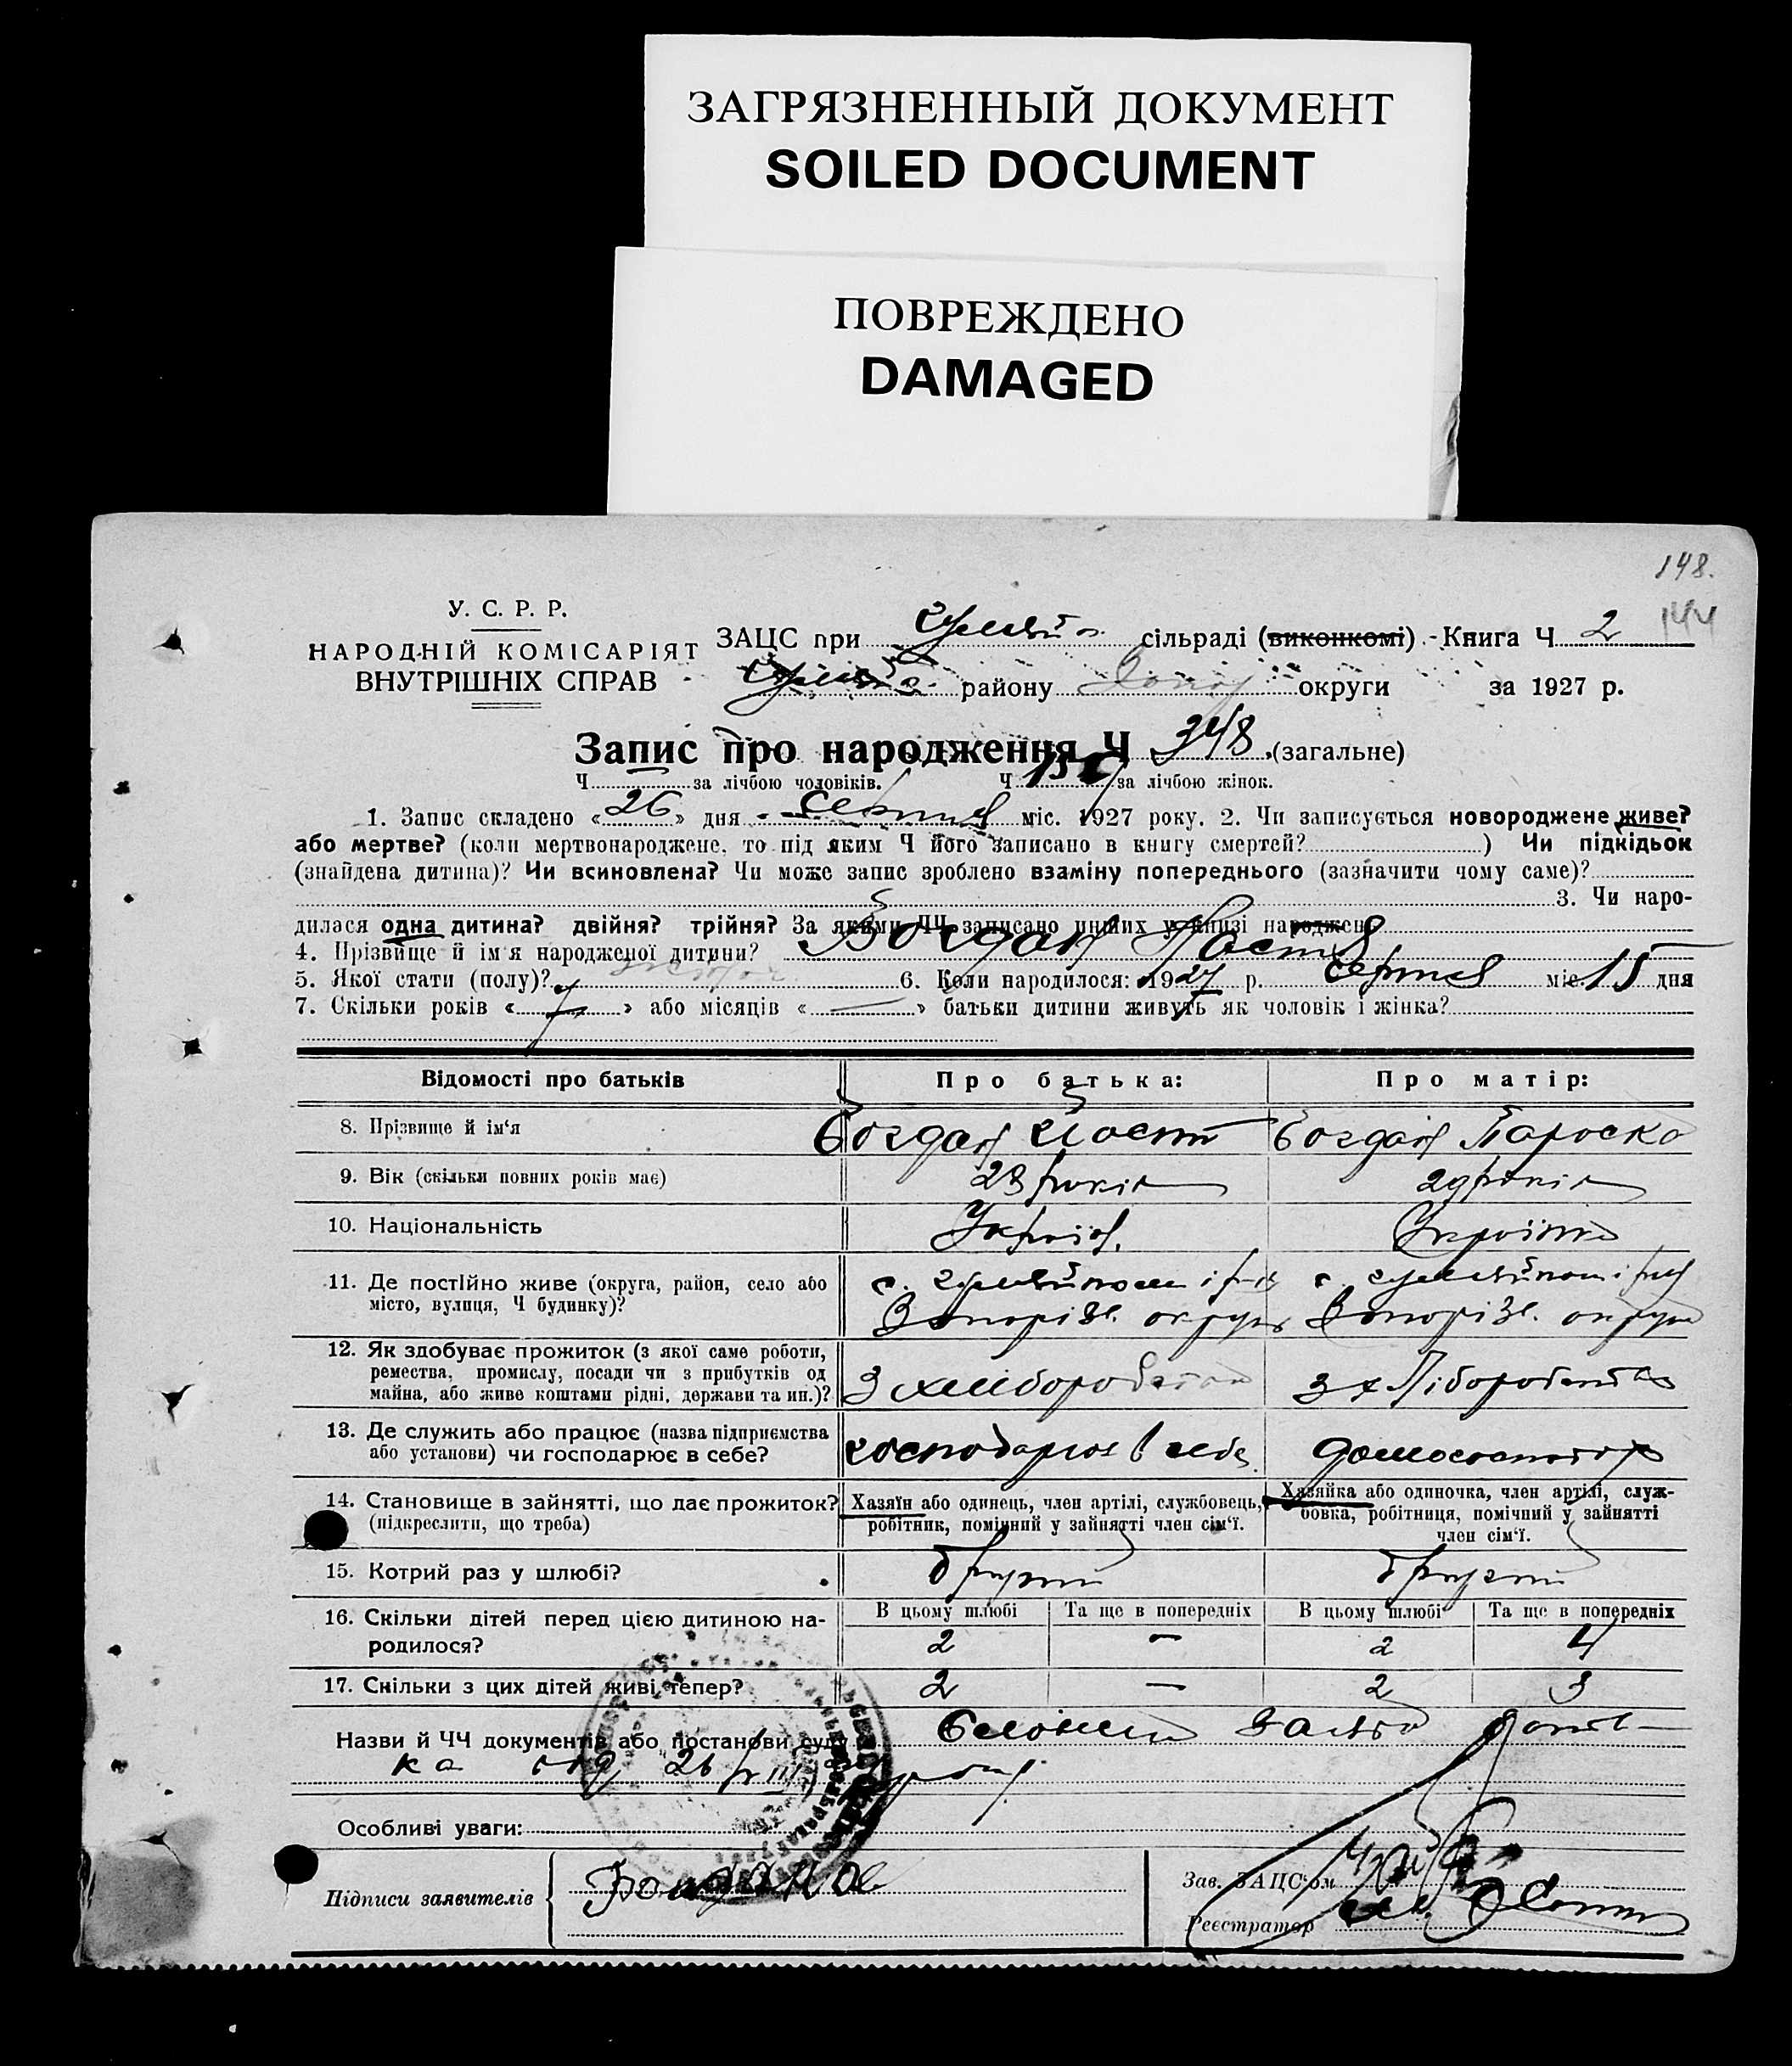 ЗАГРЯЗНЕННЫЙ ДОКУМЕНТ
SOILED DOCUMENT
ПОВРЕЖДЕНО
DAMAGED
148.
144
У. С. Р. Р.
НАРОДНІЙ КОМІСАРІЯТ
ВНУТРІШНІХ СПРАВ
ЗАЦС при сільраді (виконкомі) - Книга Ч 2
району округи за 1927 р.
Запис про народження Ч 348 (загальне)
Ч за лічбою чоловіків. Ч за лічбою жінок.
1. Запис складено «26» дня серпня міс. 1927 року. 2. Чи записується новороджене живе?
або мертве? (коли мертвонароджене, то під яким Ч його записано в книгу смертей? ) Чи підкідьок
(знайдена дитина)? Чи всиновлена? Чи може запис зроблено взаміну попереднього (зазначити чому саме)?
3. Чи наро-
дилася одна дитина? двійня? трійня? За якими ЧЧ записано инших у книзі народжень
4. Прізвище й ім'я народженої дитини? Богдан Настя
5. Якої стати (полу)? 6. Коли народилося: 1927 р. серпня міс. 15 дня
7. Скільки років « 7 » або місяців « — » батьки дитини живуть як чоловік і жінка?
Відомості про батьків
Про батька:
Про матір:
8. Прізвище й ім'я Богдан Богдан Параска
9. Вік (скільки повних років має) 28 років 29 років
10. Національність Україн. Українка
11. Де постійно живе (округа, район, село або
місто, вулиця, Ч будинку)?
Запорізь. округи Запорізь. округи
12. Як здобуває прожиток (з якої саме роботи,
ремества, промислу, посади чи з прибутків од
майна, або живе коштами рідні, держави та ин.)?
З хліборобства З хліборобства
13. Де служить або працює (назва підприємства
або установи) чи господарює в себе?
господарює в себе домогосподарка
14. Становище в зайнятті, що дає прожиток?
(підкреслити, що треба)
Хазяїн або одинець, член артілі, службовець,
робітник, помічний у зайнятті член сім'ї.
Хазяйка або одиночка, член артілі, служ-
бовка, робітниця, помічний у зайнятті
член сім'ї.
15. Котрий раз у шлюбі? другий другий
16. Скільки дітей перед цією дитиною на-
родилося?
В цьому шлюбі Та ще в попередніх В цьому шлюбі Та ще в попередніх
2 — 2 4
17. Скільки з цих дітей живі тепер? 2 — 2 3
Назви й ЧЧ документів або постанови суду
Особливі уваги:
Підписи заявителів
Зав. ЗАЦС'ом
Реєстратор